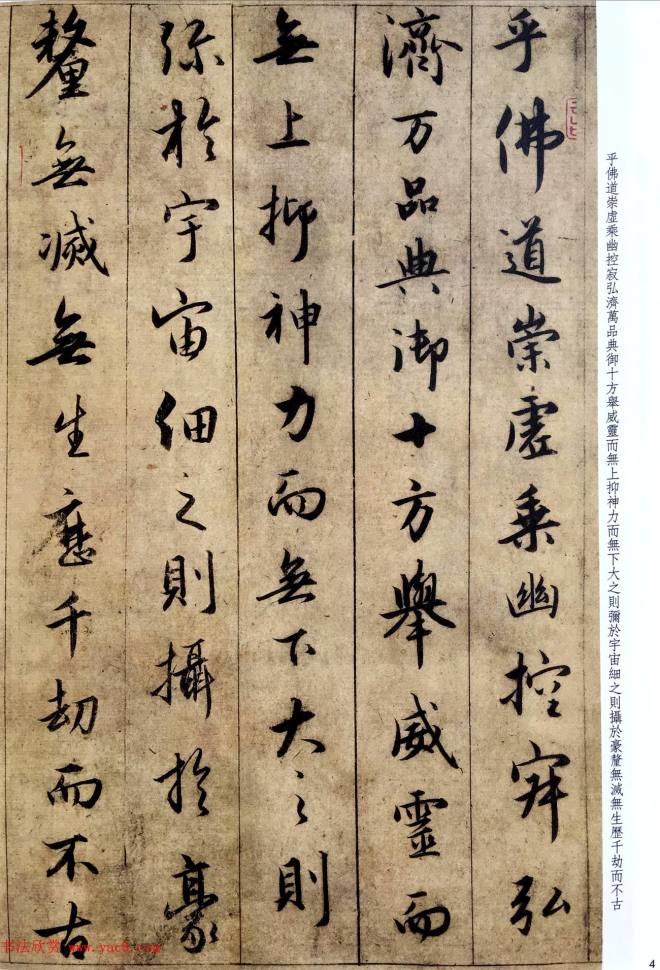 乎佛道崇虛乘幽控寂弘
濟万品典御十方舉威靈而
無上抑神力而無下大之則
弥於宇宙细之則攝於豪
釐無滅無生歷千劫而不古
乎佛道崇虛乘幽控寂弘濟萬品典御十方舉威靈而無上抑神力而無下大之則彌於宇宙細之則攝於豪釐無滅無生歷千劫而不古
书法欣赏 www.yac8.com
4